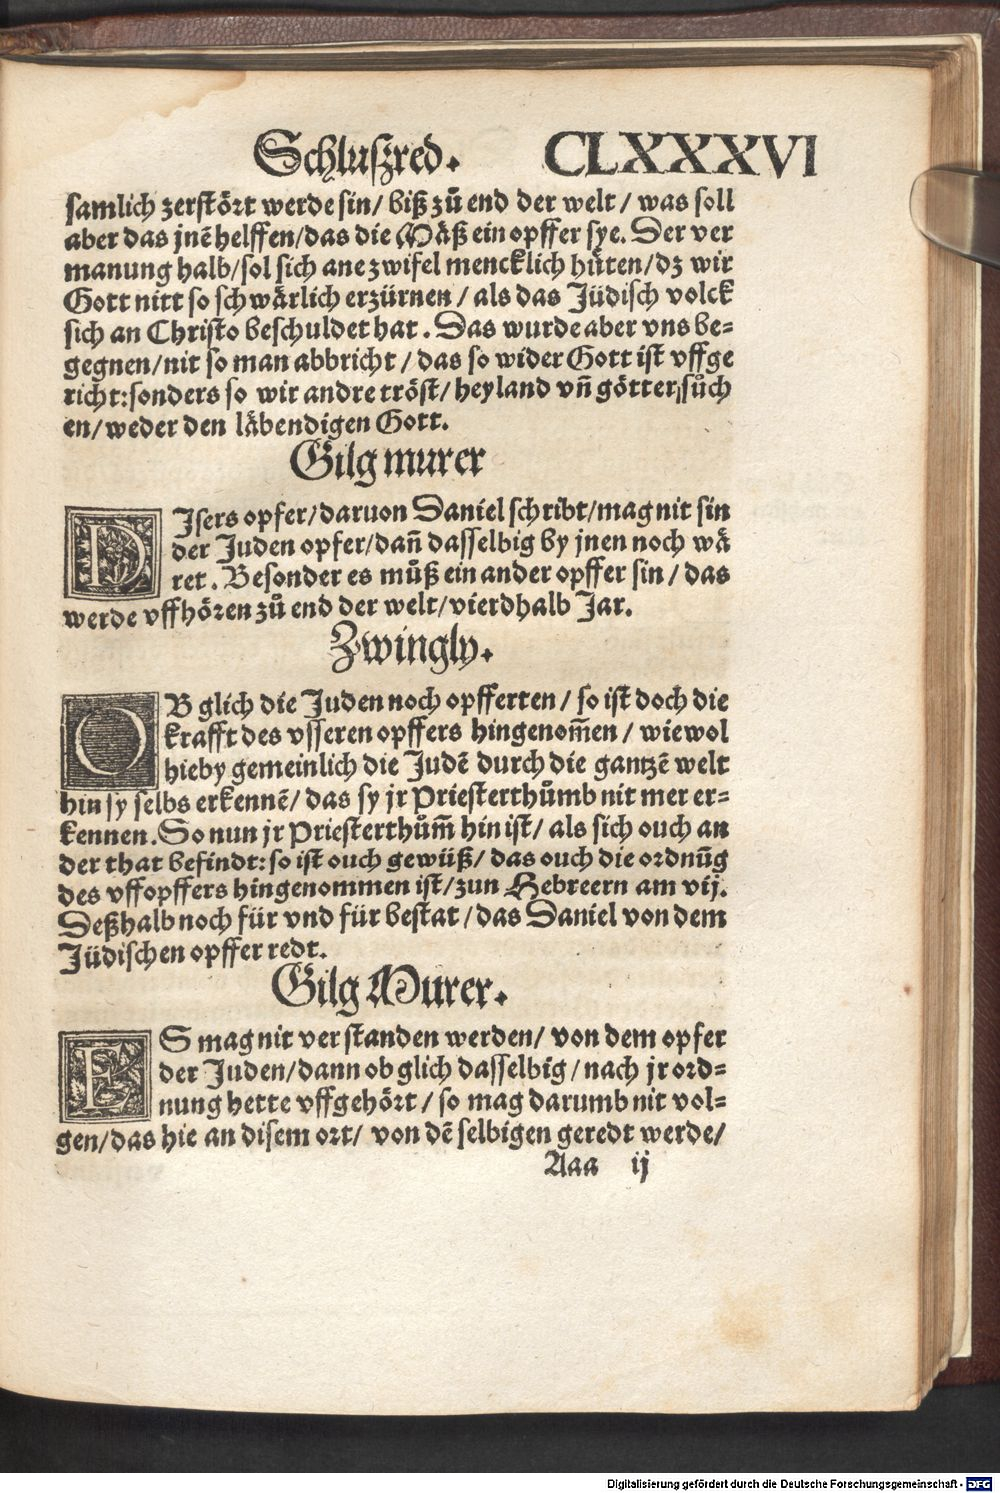 Schlußred. CLXXXVI
samlich zerstört werde sin/ biß zů end der welt / was soll
aber das jnē helffen/das die Mäß ein opffer sye. Der ver
manung halb/sol sich ane zwifel mencklich hüten/dz wir
Gott nitt so schwärlich erzürnen / als das Jüdisch volck
sich an Christo beschuldet hat. Das wurde aber vns be=
gegnen/nit so man abbricht / das so wider Gott ist vffge
richt:sonders so wir andre tröst/ heyland vñ götter/sůch
en/weder den läbendigen Gott.
Gilg murer
DJsers opfer/daruon Daniel schribt/mag nit sin
der Juden opfer/dañ dasselbig by jnen noch wä
ret. Besonder es můß ein ander opffer sin / das
werde vffhören zů end der welt/vierdhalb Jar.
Zwingly.
OB glich die Juden noch opfferten / so ist doch die
krafft des vsseren opffers hingenom̄en / wiewol
hieby gemeinlich die Judē durch die gantzē welt
hin sy selbs erkennē/ das sy jr Priesterthůmb nit mer er=
kennen. So nun jr Priesterthům̄ hin ist/ als sich ouch an
der that befindt: so ist ouch gewüß/ das ouch die ordnūg
des vffopffers hingenommen ist/zun Hebreern am vij.
Deßhalb noch für vnd für bestat / das Daniel von dem
Jüdischen opffer redt.
Gilg Murer.
ES mag nit verstanden werden/ von dem opfer
der Juden/dann ob glich dasselbig / nach jr ord=
nung hette vffgehört / so mag darumb nit vol=
gen/das hie an disem ort/ von dē selbigen geredt werde/
Aaa ij
Digitalisierung gefördert durch die Deutsche Forschungsgemeinschaft - DFG